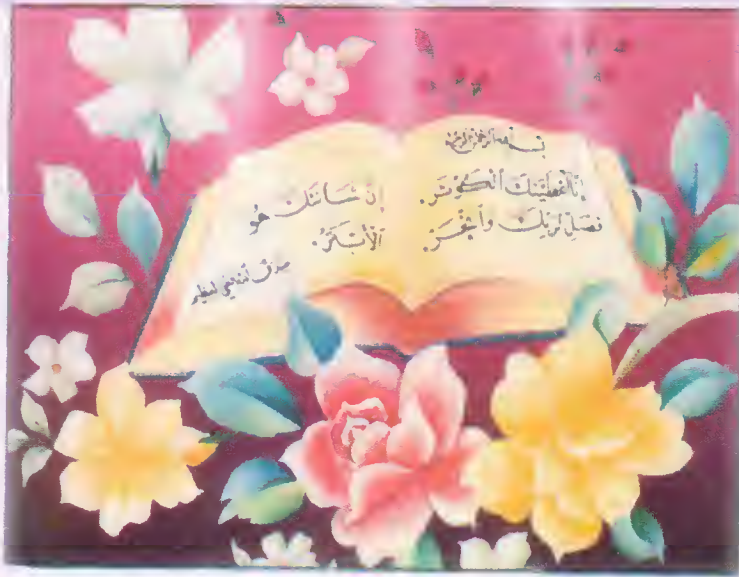 بسم الله الرحمن الرحيم
إِنَّا أَعْطَيْنَٰكَ ٱلْكَوْثَرَ.
فَصَلِّ لِرَبِّكَ وَٱنْحَرْ.
إِنَّ شَانِئَكَ هُوَ
ٱلْأَبْتَرُ.
صدق الله العلي العظيم